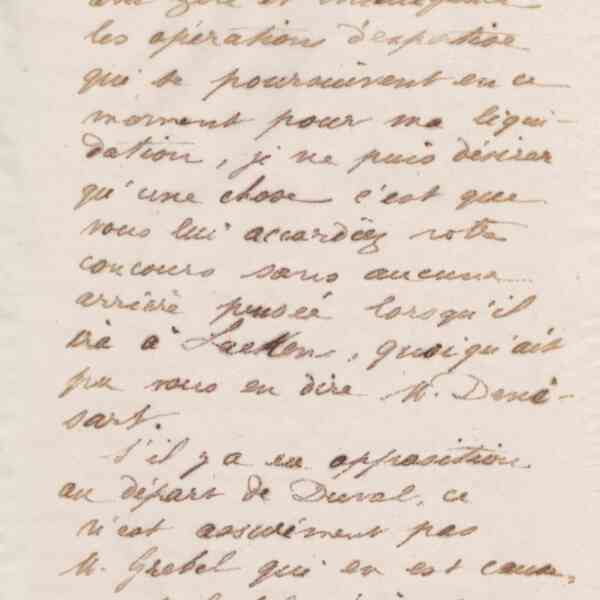 les opérations d'expertise
qui se poursuivent en ce
moment pour ma liqui-
dation, je ne puis désirer
qu'une chose c'est que
vous lui accordiez votre
concours sans aucune
arrière pensée lorsqu'il
ira à Laeken, quoiqu'ait
pu vous en dire M. Deni-
sart.
S'il y a eu opposition
au départ de Duval, ce
n'est assurément pas
M. Grebel qui en est cause,